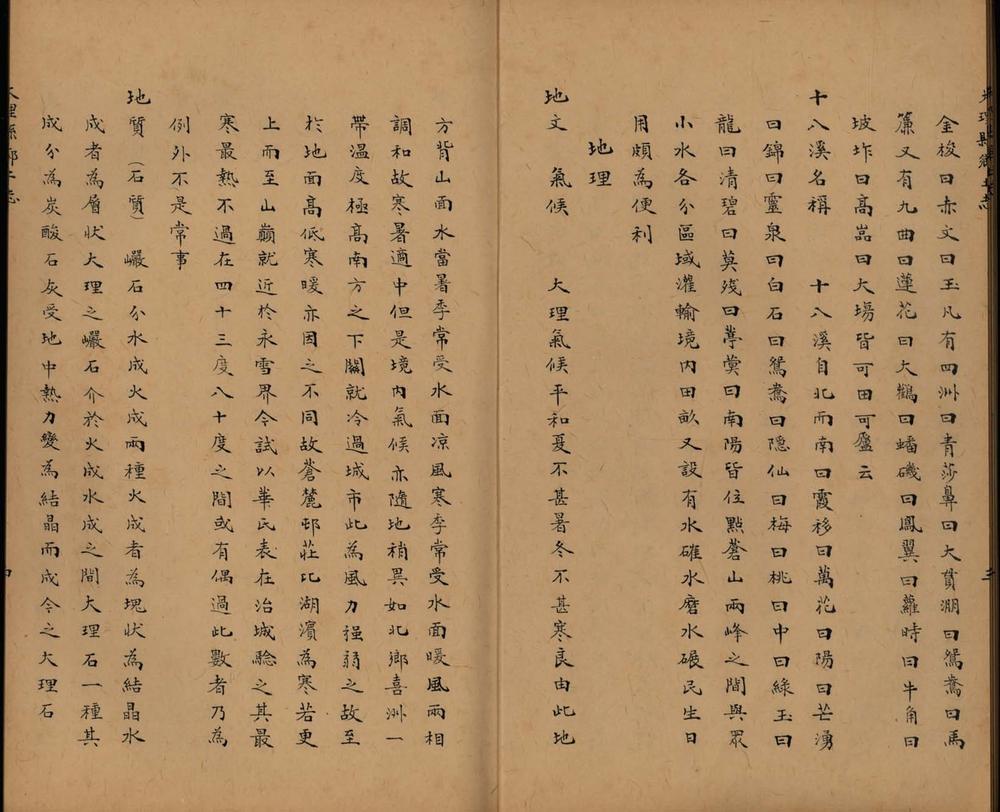 金梭曰赤文曰玉几有四洲曰青莎鼻曰大貫淜曰鴛鴦曰馬
簾又有九曲曰蓮花曰大鸛曰蟠磯曰鳳翼曰蘿時曰牛角曰
坡垰曰高嵓曰大塲皆可田可廬云
十八溪名稱　十八溪自北而南曰霞移曰萬花曰陽曰芒湧
曰錦曰靈泉曰白石曰鴛鴦曰隱仙曰梅曰桃曰中曰綠玉曰
龍曰清碧曰莫殘曰葶蓂曰南陽皆位㸃蒼山兩峰之間與眾
小水各分區域灌輸境內田畝又設有水碓水磨水碾民生日
用頗為便利
地理
地文　氣候　大理氣候平和夏不甚暑冬不甚寒良由此地
方背山面水當暑季常受水面凉風寒季常受水面暖風兩相
調和故寒暑適中但是境內氣候亦隨地稍異如北鄉喜洲一
帶溫度極高南方之下關就冷過城市此為風力强弱之故至
於地面高低寒暖亦因之不同故蒼麓邨莊比湖濱為寒若更
上而至山巔就近於氷雪界今試以華氏表在治城驗之其最
寒最熱不過在四十三度八十度之間或有偶過此數者乃為
例外不是常事
地質（石質）巖石分水成火成兩種火成者為塊狀為結晶水
成者為層狀大理之巖石介於火成水成之間大理石一種其
成分為炭酸石灰受地中熱力變為結晶而成今之大理石